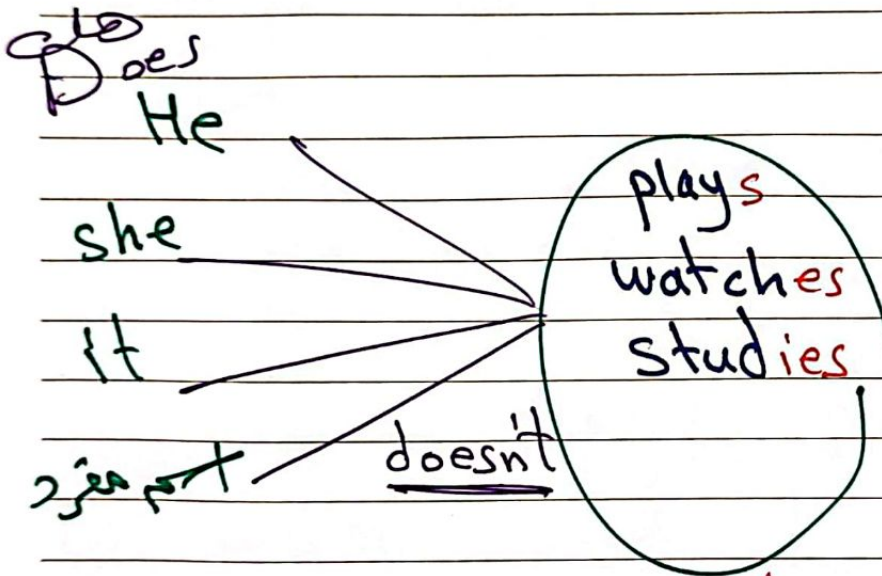 هل
Does
He
she
it
اسم مفرد
doesn't
plays
watches
studies